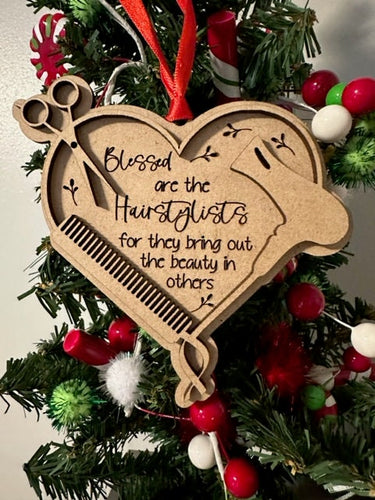 Blessed
are the
Hairstylists
for they bring out
the beauty in
others